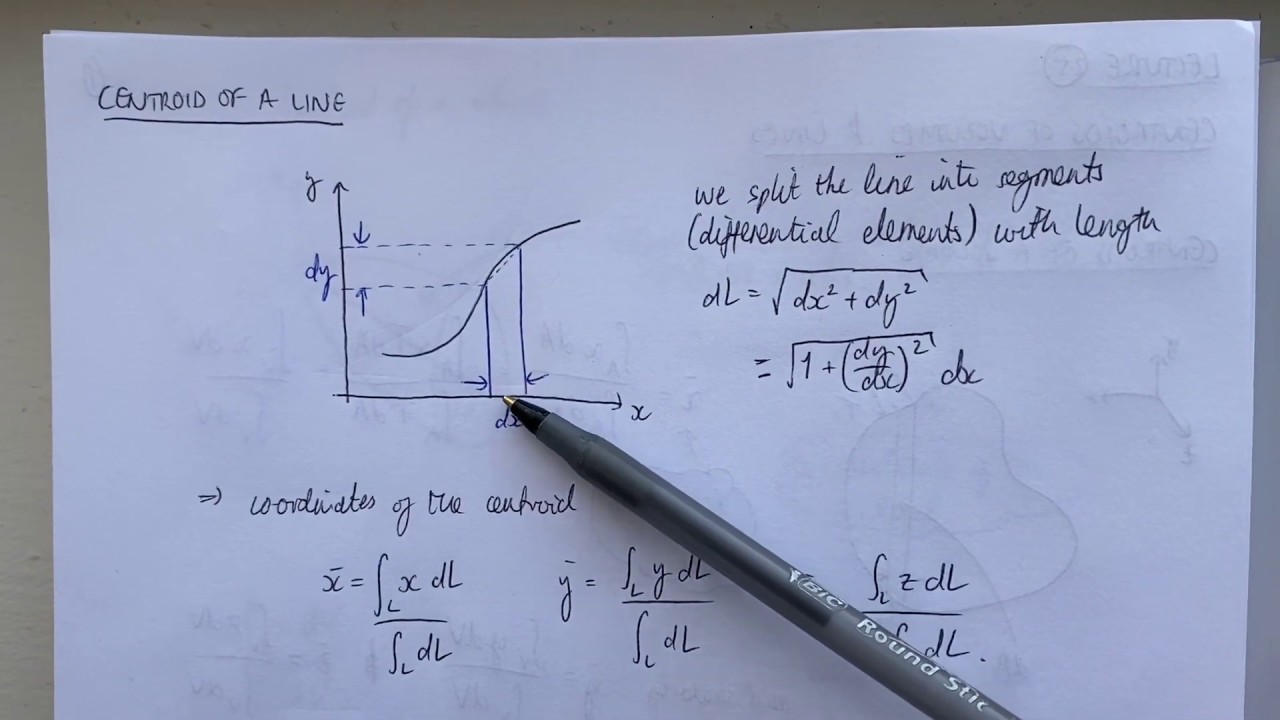 CENTROID OF A LINE
y
dy
x
dx
we split the line into segments
(differential elements) with length
dL = √(dx² + dy²)
= √(1 + (dy/dx)²) dx
⇒ coordinates of the centroid
x̄ = ∫_L x dL / ∫_L dL ȳ = ∫_L y dL / ∫_L dL ∫_L z dL / ∫_L dL.
BIC Round Stic
LECTURE 25
CENTROIDS OF VOLUMES & LINES